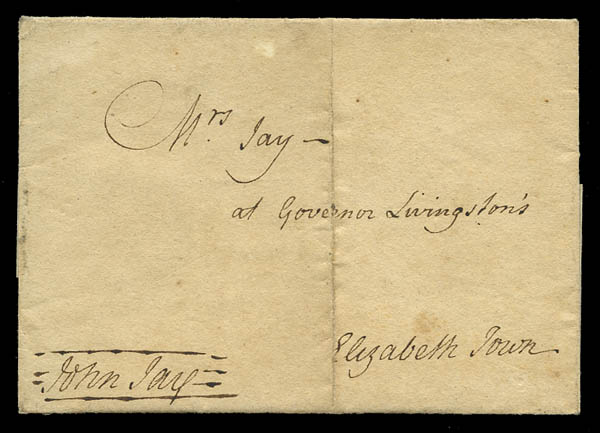 Mrs Jay —
at Governor Livingston's
Elizabeth Town
John Jay